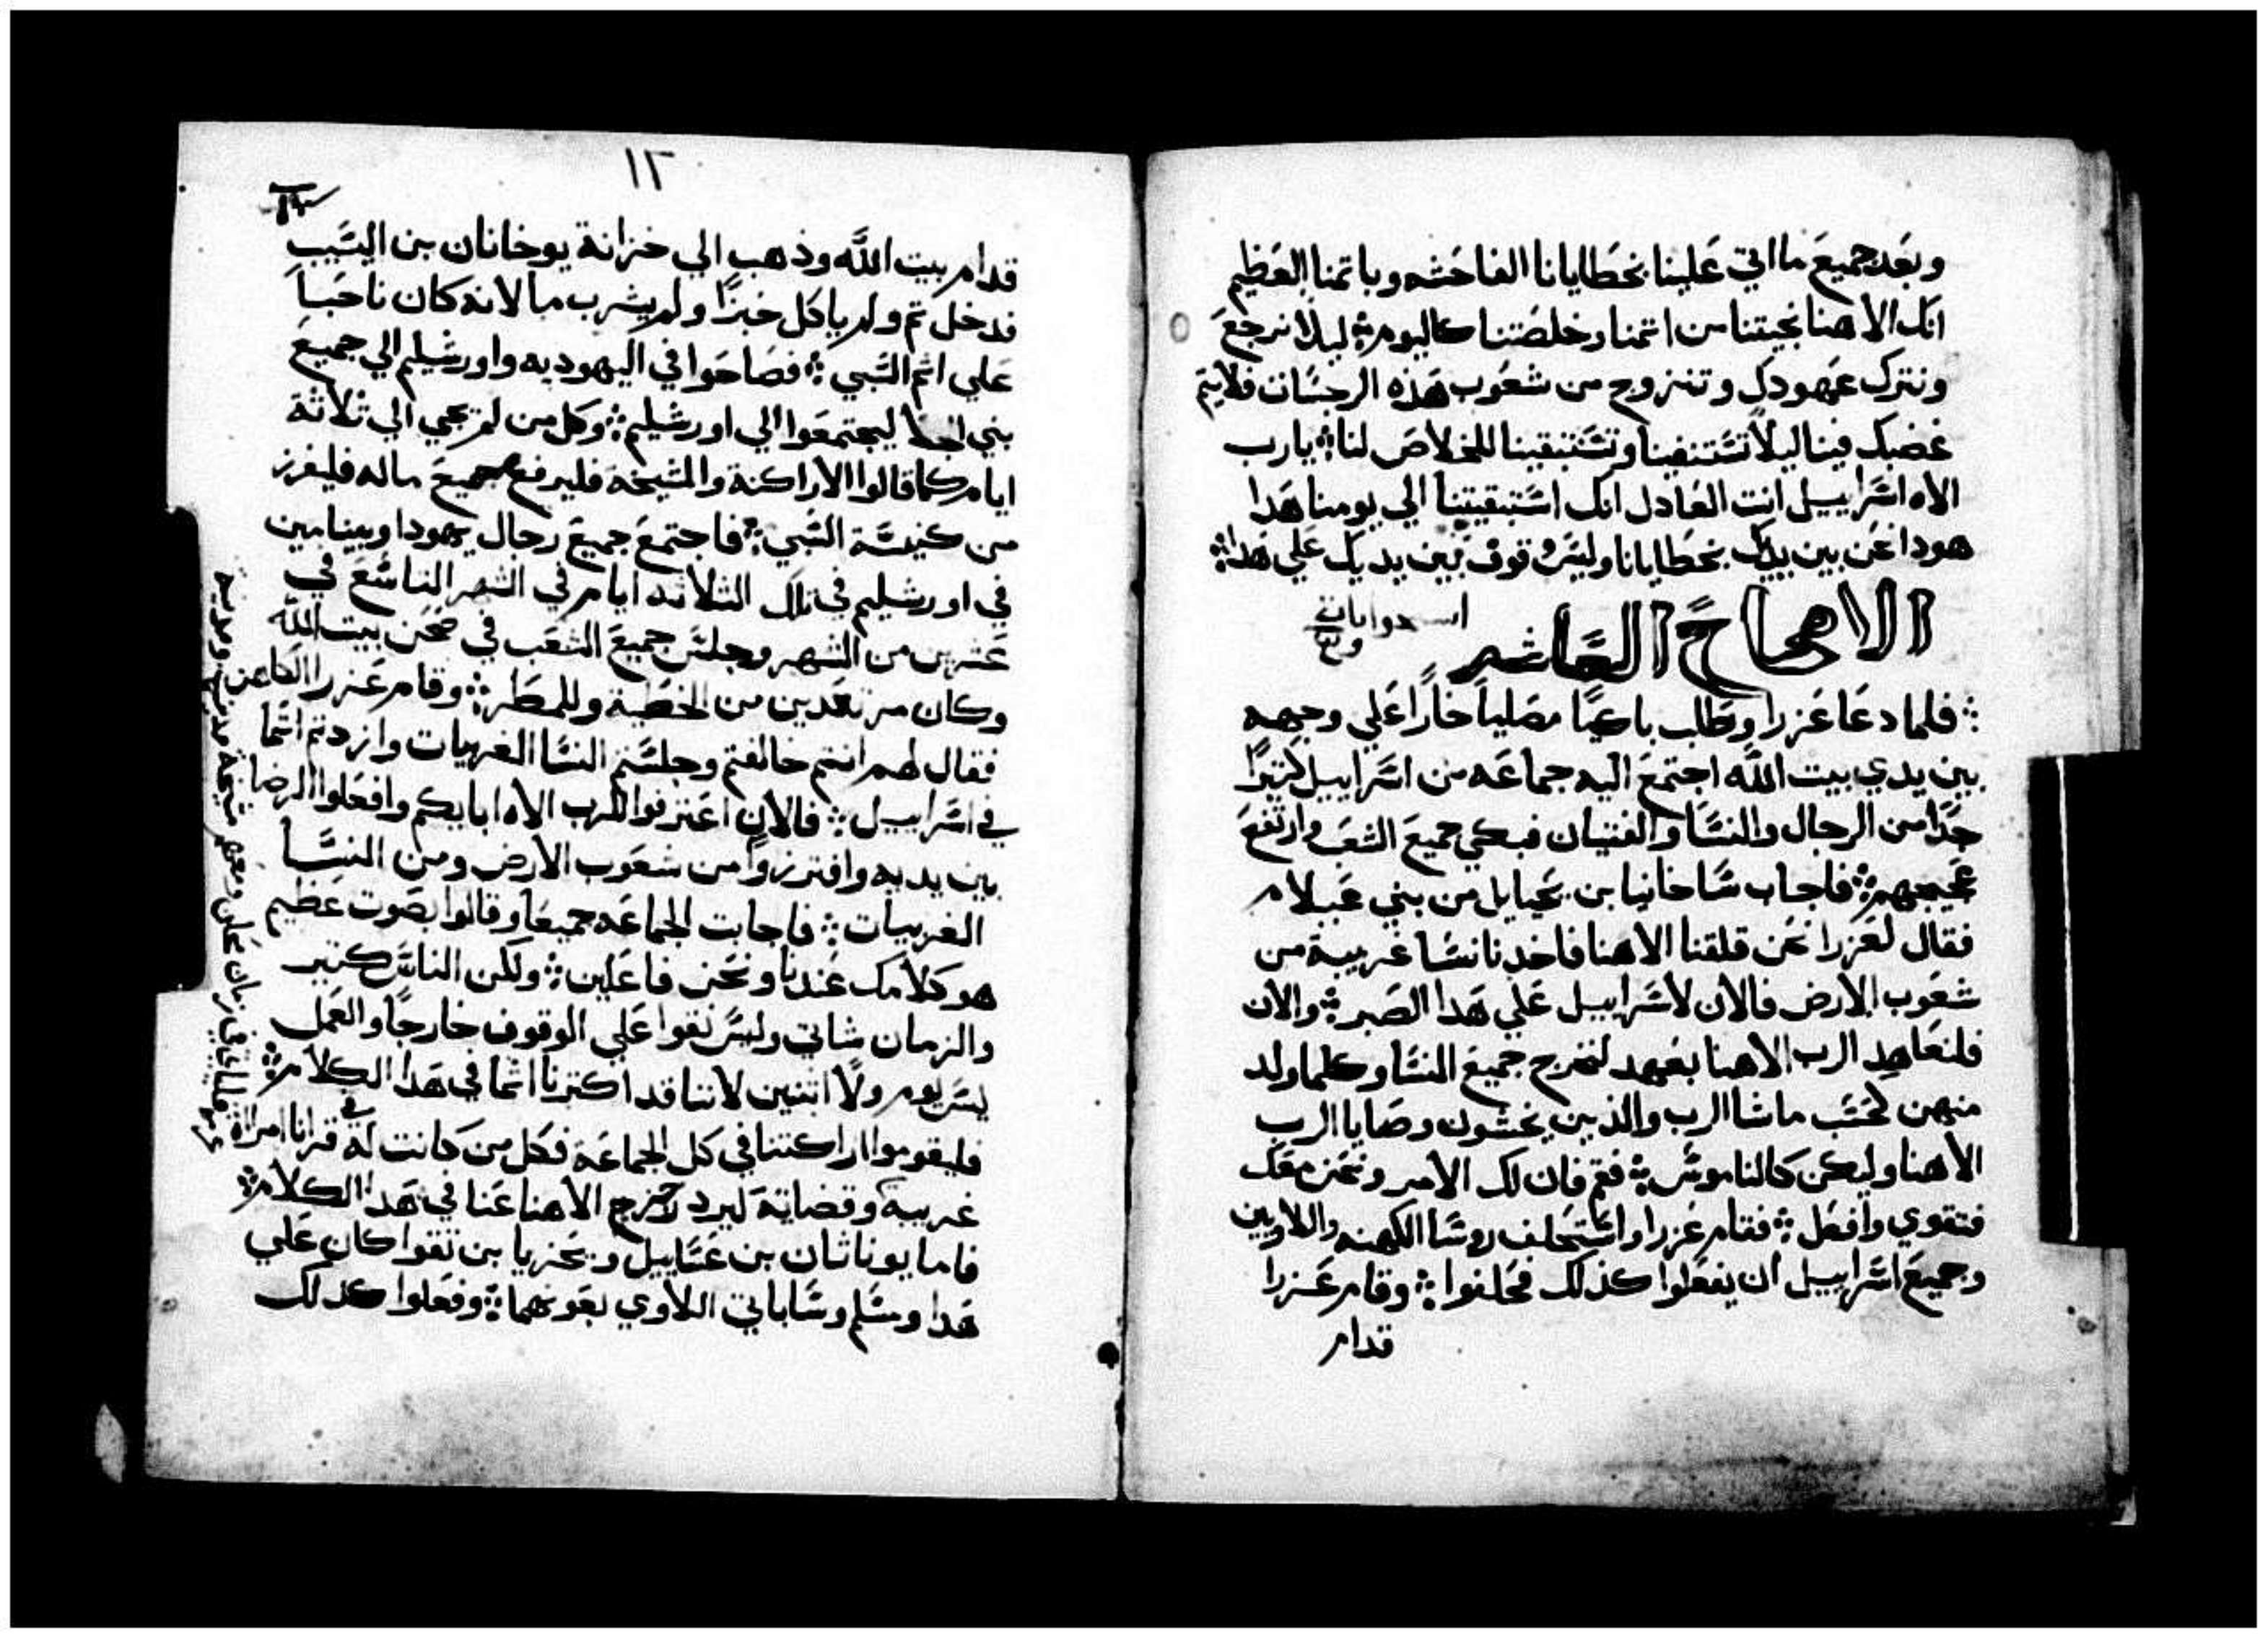 وبعد جميع ما اتي علينا بخطايانا الفاحشه وباتمنا العظيم
انك الاهنا نجيتنا من اتمنا وخلصتنا كاليوم ؞ ليلا نرجع
ونترك عهودك ونتزوج من شعوب هذه الرجسات فلا يتم
غضبك فينا ليلا تستنفينا وتستبقينا للخلاص لنا ؞ يارب
الاه اسراييل انت العادل انك استبقيتنا الي يومنا هدا
هودا نحن بين يديك بخطايانا وليس وقوف بين يديك علي هدا ؞
الاصحاح العاشر
؞ فلما دعا عزرا وطلب باكيا مصليا خارا علي وجهه
بين يدي بيت الله اجتمع اليه جماعه من اسراييل كتيرا
جدا من الرجال والنسا والفتيان فبكي جميع الشعب وارتفع
عجيجهم ؞ فاجاب شاخانيا بن يحيايل من بني عبلام
فقال لعزرا نحن قلقنا الاهنا فاخدنا نسا غريبة من
شعوب الارض فالان لاسراييل علي هدا الصبر ؞ والان
فلنعاهد الرب الاهنا بعهد لنخرج جميع النسا وكلما ولد
منهن كحسب ماشا الرب والذين يخشون وصايا الرب
الاهنا وليكن كالناموس ؞ فقم فان لك الامر ونحن معك
فتقوي وافعل ؞ فقام عزرا واستحلف روسا الكهنه واللاويين
وجميع اسراييل ان يفعلوا كذلك فحلفوا ؞ وقام عزرا
قدام
١٢
قدام بيت الله وذهب الي خزانة يوخانان بن اليسيب
فدخل تم ولم ياكل خبزا ولم يشرب ما لانه كان ناحبا
علي اتم السبي ؞ فصاحوا في اليهوديه واورشليم الي جميع
بني الجلا ليجتمعوا الي اورشليم ؞ وكل من لم يجي الي ثلاثة
ايام كما قالوا الاراكنة والمشيخة فليرفع جميع ماله فليفرز
من كنيسة السبي ؞ فاجتمع جميع رجال يهودا وبنيامين
في اورشليم في تلك الثلاثه ايام في الشهر التاسع في
عشرين من الشهر وجلس جميع الشعب في صحن بيت الله
وكان مرتعدين من الخطية وللمطر ؞ وقام عزرا الكاهن
فقال لهم انتم خالفتم وجلستم النسا الغربيات وازدتم اتما
في اسراييل ؞ فالان اعترفوا للرب الاه ابايكم وافعلوا الرضا
بين يديه وافترزوا من شعوب الارض ومن النسا
الغربيات ؞ فاجابت الجماعه جميعا وقالوا بصوت عظيم
هو كلامك عندنا ونحن فاعلين ؞ ولكن الناس كتير
والزمان شاتي وليس نقوا علي الوقوف خارجا والعمل
ليس ليوم ولا اتنين لاننا قد اكترنا اتما في هدا الكلام ؞
فليقوموا اراكنتنا في كل الجماعة فكل من كانت له في قرانا امراة
غريبة وقضاية ليرد رجز الاهنا عنا في هدا الكلام ؞
فاما يوناتان بن عساييل ويحزيا بن تقوا كان علي
هدا ومسلم وساباتي اللاوي بعونهما ؞ وفعلوا كدلك